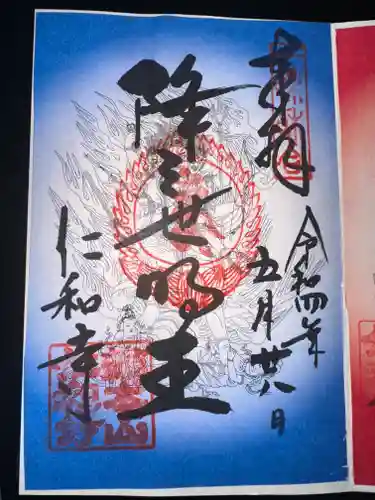 奉拝
令和四年
五月廿八日
降三世明王
仁和寺